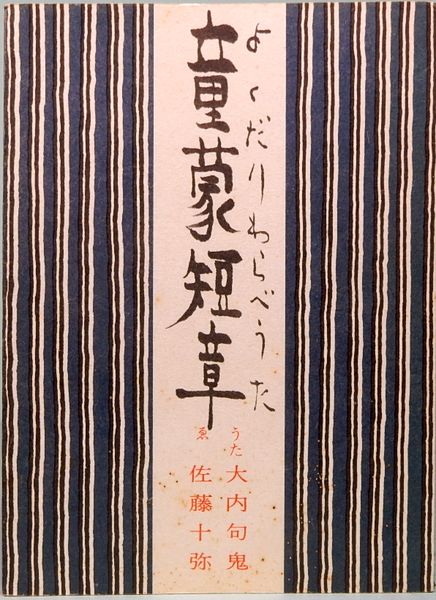 よくだりわらべうた
童蒙短章
うた 大内句鬼
ゑ 佐藤十弥